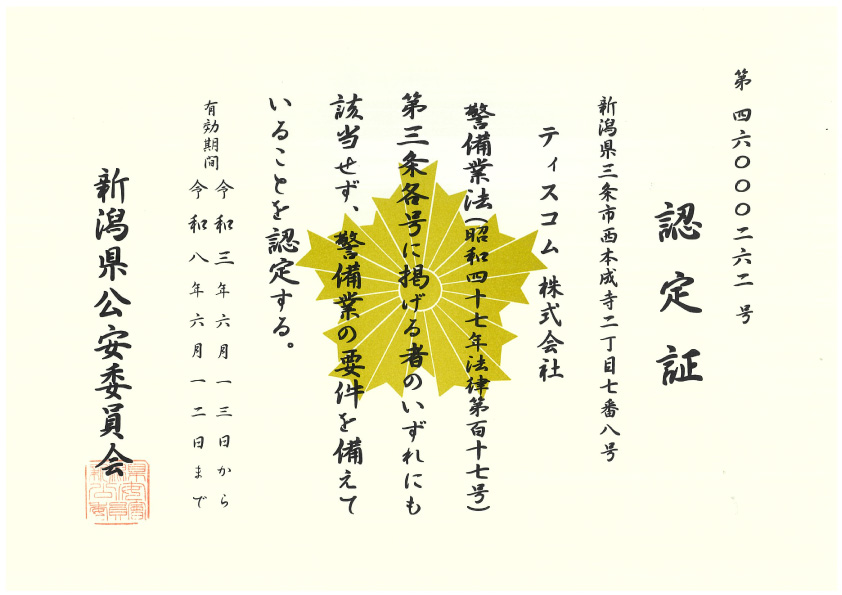 第四六〇〇〇二六二号
認定証
新潟県三条市西本成寺二丁目七番八号
ティスコム 株式会社
警備業法(昭和四十七年法律第百十七号)
第三条各号に掲げる者のいずれにも
該当せず、警備業の要件を備えて
いることを認定する。
有効期間
令和三年六月一三日から
令和八年六月一二日まで
新潟県公安委員会